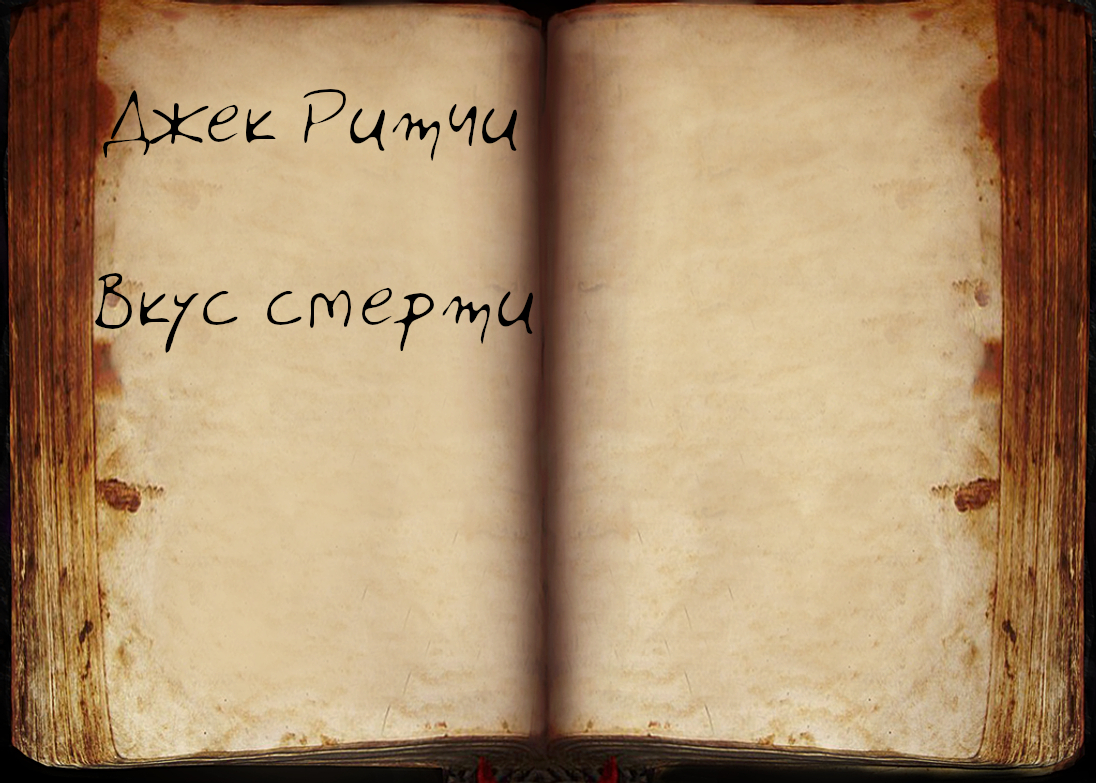 Джек Ритчи
Вкус смерти